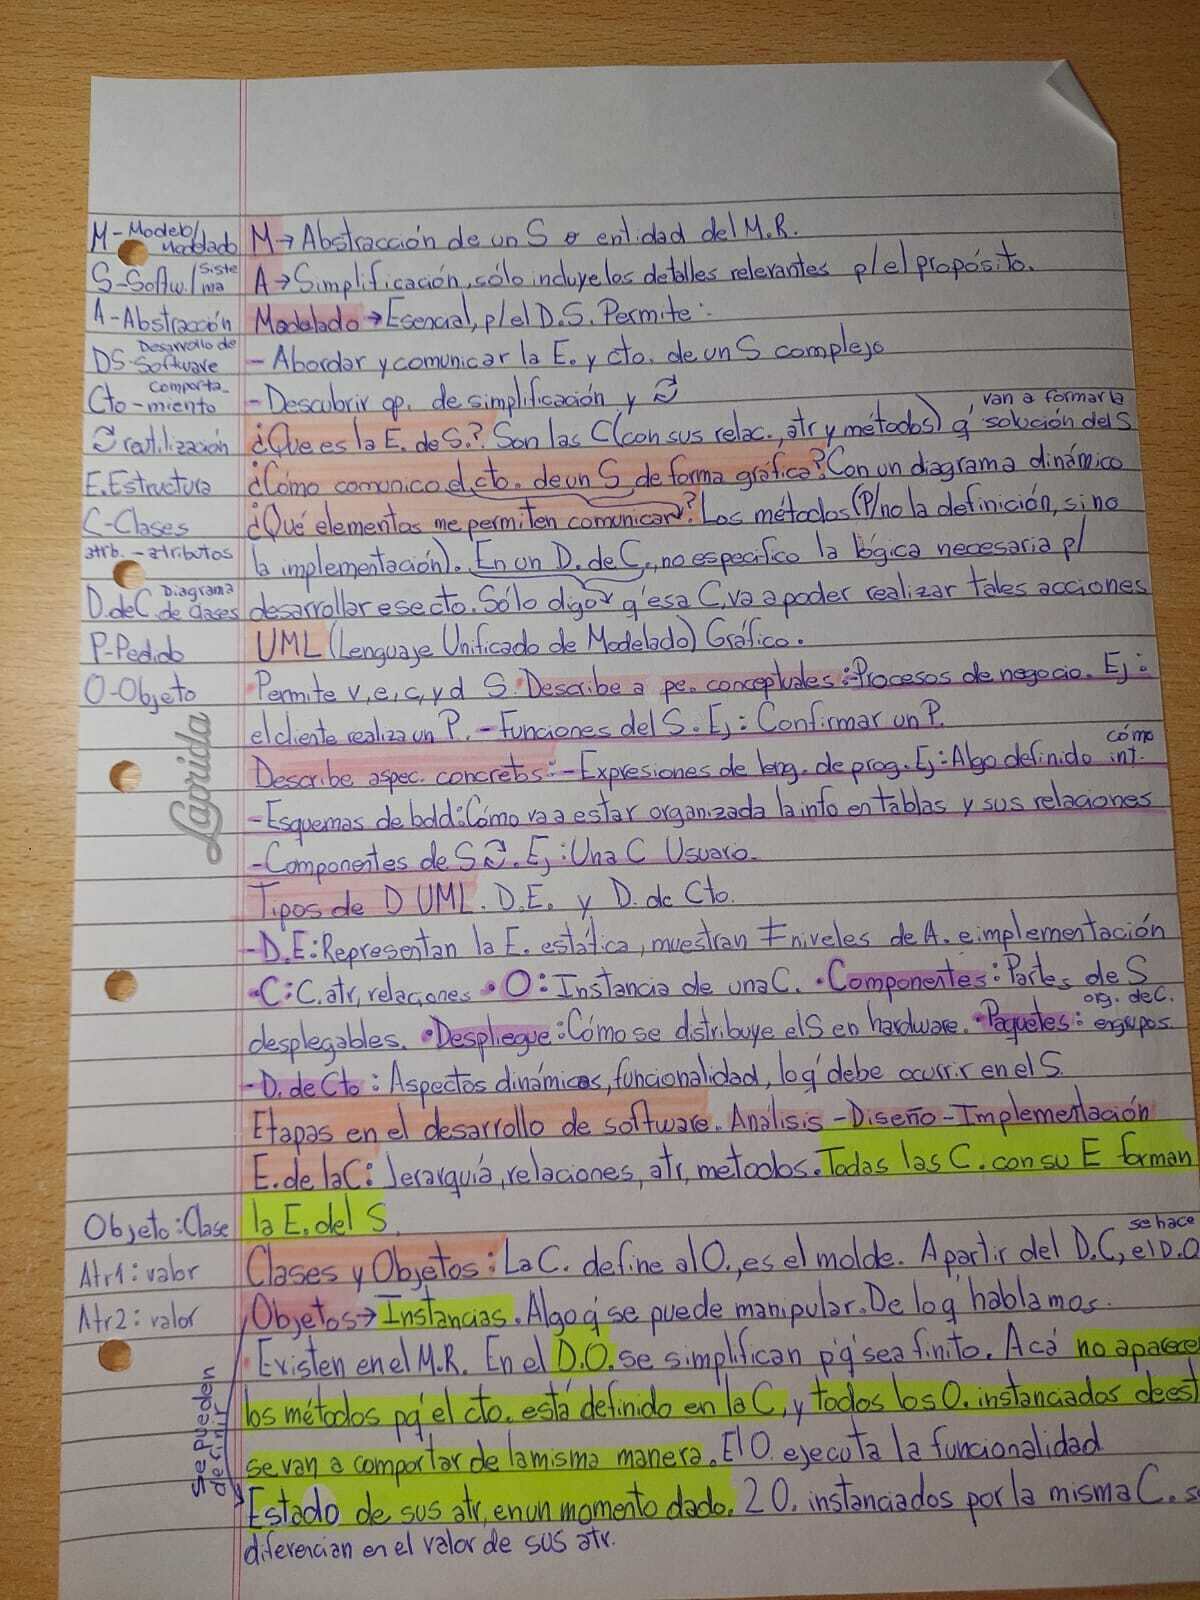 M-Modelo/ Modelado
S-Softw./Sistema
A-Abstracción
DS-Desarrollo de Software
Cto-Comporta-miento
⟳ reutilización
E.Estructura
C-Clases
atrb.-atributos
D.deC. Diagrama de clases
P-Pedido
O-Objeto
Laprida
M→Abstracción de un S o entidad del M.R.
A→Simplificación, sólo incluye los detalles relevantes p/el propósito.
Modelado→Esencial, p/el D.S. Permite:
-Abordar y comunicar la E. y cto. de un S complejo
-Descubrir op. de simplificación y ⟳
¿Que es la E. de S.? Son las C(con sus relac., atr y métodos) q' van a formar la solución del S
¿Cómo comunico el cto. de un S de forma gráfica? Con un diagrama dinámico
¿Qué elementos me permiten comunicar? Los métodos (P/no la definición, sino
la implementación). En un D. de C., no especifico la lógica necesaria p/
desarrollar ese cto. Sólo digo q' esa C, va a poder realizar tales acciones
UML (Lenguaje Unificado de Modelado) Gráfico.
Permite v, e, c, y d S. Describe a pe. conceptuales: -Procesos de negocio. Ej:
el cliente realiza un P. -Funciones del S. Ej: Confirmar un P.
Describe aspec. concretos: -Expresiones de leng. de prog. Ej: Algo definido cómo int.
-Esquemas de bdd: Cómo va a estar organizada la info en tablas y sus relaciones
-Componentes de S ⟳. Ej: Una C Usuario.
Tipos de D UML. D.E. y D. de Cto.
-D.E: Representan la E. estática, muestran ≠ niveles de A. e implementación
•C: C. atr, relaciones •O: Instancia de una C. •Componentes: Partes de S
desplegables. •Despliegue: Cómo se distribuye el S en hardware. •Paquetes: org. de C. en grupos.
-D. de Cto: Aspectos dinámicos, funcionalidad, lo q' debe ocurrir en el S.
Etapas en el desarrollo de software. Análisis -Diseño -Implementación
E. de la C: Jerarquía, relaciones, atr, metodos. Todas las C. con su E forman
la E. del S.
Objeto: Clase
Atr1: valor
Atr2: valor
Clases y Objetos: La C. define al O., es el molde. A partir del D.C, se hace el D.O
Objetos→Instancias. Algo q' se puede manipular. De lo q' hablamos.
•Existen en el M.R. En el D.O. se simplifican p'q' sea finito. Acá no aparece
los métodos pq' el cto. está definido en la C, y todos los O. instanciados de est
se van a comportar de la misma manera. El O. ejecuta la funcionalidad
Se pueden definir
Estado de sus atr, en un momento dado. 2 O. instanciados por la misma C. s
diferencian en el valor de sus atr.